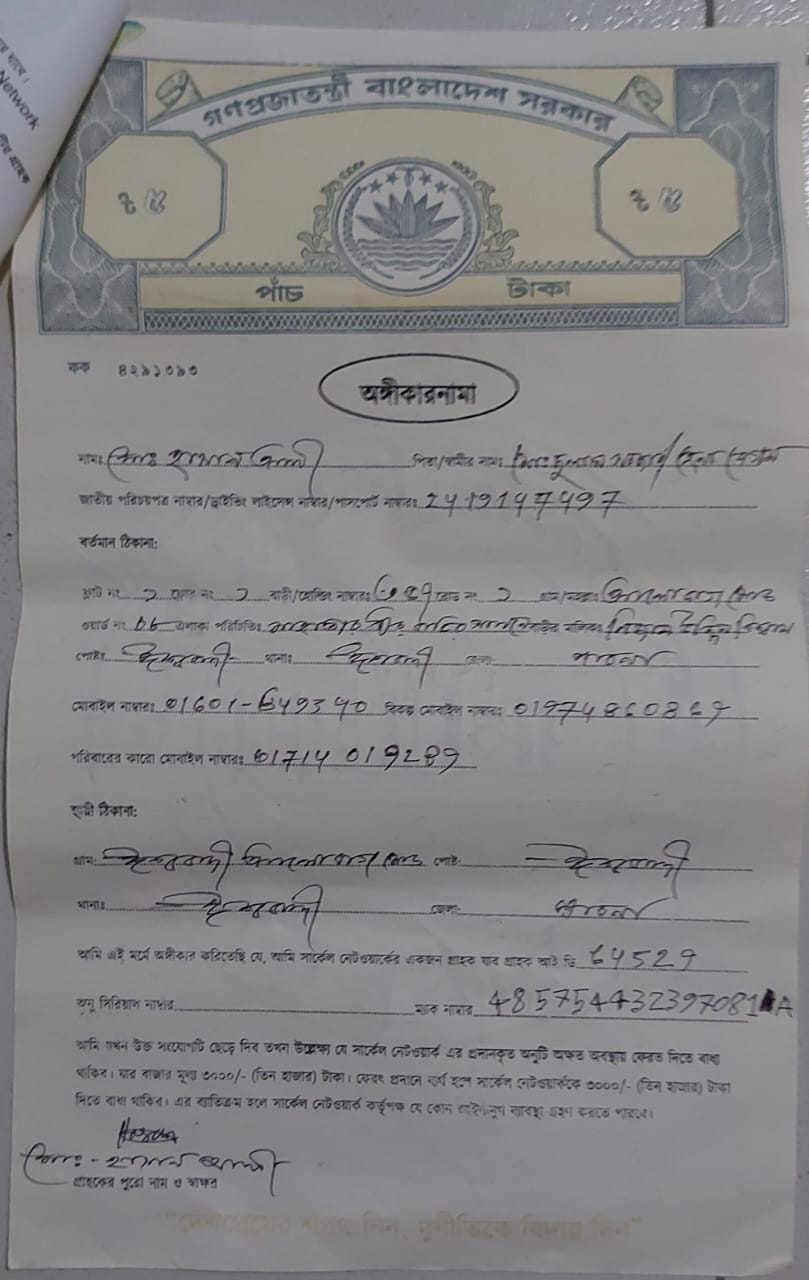 যে যাবে।
Network
গণপ্রজাতন্ত্রী বাংলাদেশ সরকার
৫ ৫
পাঁচ টাকা
কক ৪২৯১৩৯৩
অঙ্গীকারনামা
নামঃ মোঃ হাসান আলী পিতা/স্বামীর নামঃ মোঃ
জাতীয় পরিচয়পত্র নাম্বার/ড্রাইভিং লাইসেন্স নাম্বার/পাসপোর্ট নাম্বারঃ 2419147497
বর্তমান ঠিকানা:
ফ্ল্যাট নং ১ নং ১ বাড়ী/হোল্ডিং নাম্বারঃ রোড নং ১ রোড
ওয়ার্ড নং ০৮ এলাকা পরিচিতিঃ
পোষ্টঃ ঈশ্বরদী থানাঃ ঈশ্বরদী জেলাঃ পাবনা
মোবাইল নাম্বারঃ 01601-649390 বিকল্প মোবাইল নাম্বারঃ 01974860869
পরিবারের কারো মোবাইল নাম্বারঃ 01714 019289
স্থায়ী ঠিকানা:
গ্রামঃ ঈশ্বরদী রোড পোষ্টঃ ঈশ্বরদী
থানাঃ ঈশ্বরদী জেলাঃ পাবনা
আমি এই মর্মে অঙ্গীকার করিতেছি যে, আমি সার্কেল নেটওয়ার্কের একজন গ্রাহক যার গ্রাহক আই ডি 64529
অনু সিরিয়াল নাম্বার ম্যাক নাম্বার 485754432397081 A
আমি যখন উক্ত সংযোগটি ছেড়ে দিব তখন উল্লেক্ষ্য যে সার্কেল নেটওয়ার্ক এর প্রদানকৃত অনুটি অক্ষত অবস্থায় ফেরত দিতে বাধ্য
থাকিব। যার বাজার মূল্য ৩০০০/- (তিন হাজার) টাকা। ফেরৎ প্রদানে ব্যর্থ হলে সার্কেল নেটওয়ার্ককে ৩০০০/- (তিন হাজার) টাকা
দিতে বাধ্য থাকিব। এর ব্যতিক্রম হলে সার্কেল নেটওয়ার্ক কর্তৃপক্ষ যে কোন আইনানুগ ব্যবস্থা গ্রহণ করতে পারবে।
মোঃ - হাসান আলী
গ্রাহকের পুরো নাম ও স্বাক্ষর
"দেশপ্রেমের শপথ নিন, দুর্নীতিকে বিদায় দিন"